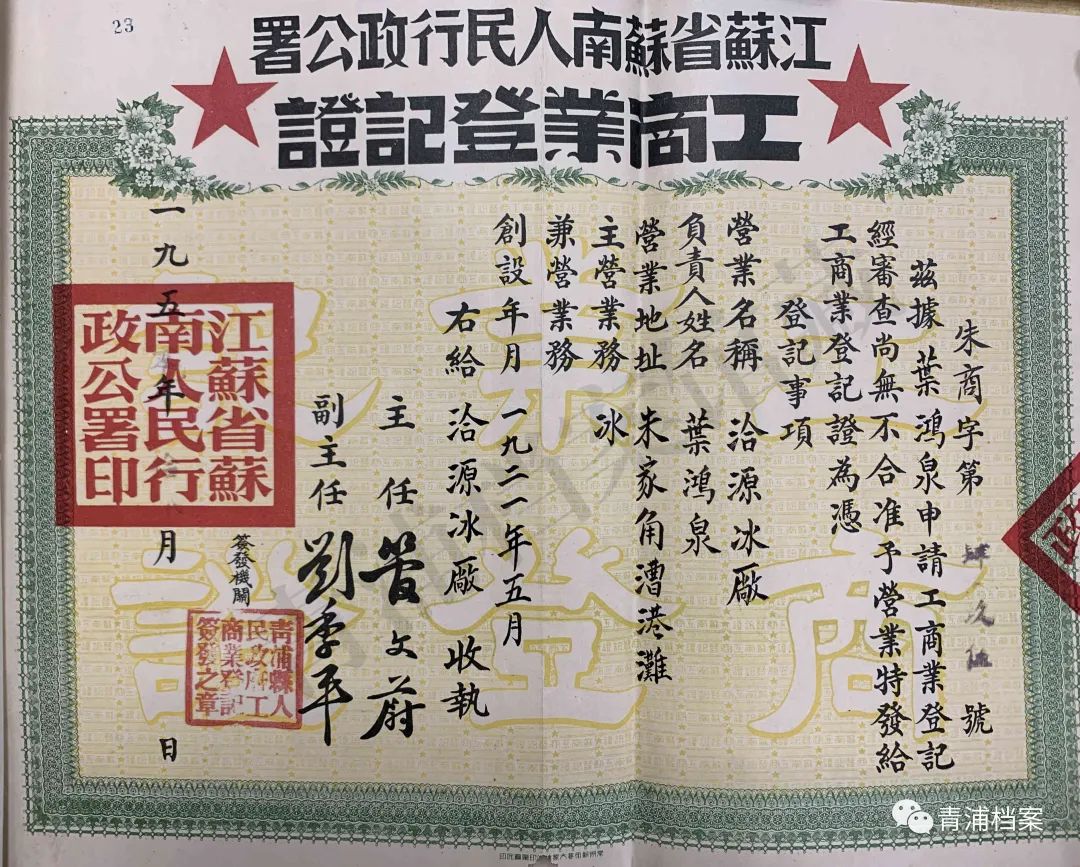 23
江蘇省蘇南人民行政公署
工商業登記證
朱商字第 肆 伍 號
茲據 葉鴻泉申請工商業登記
經審查尚無不合准予營業特發給
工商業登記證為憑
登記事項
營業名稱 洽源冰廠
負責人姓名 葉鴻泉
營業地址 朱家角漕港灘
主營業務 冰
兼營業務
創設年月 一九二一年五月
右給 洽源冰廠 收執
主任 管文蔚
副主任 劉季平
簽發機關
青浦縣人民政府工商業登記簽發之章
一九五 年 月 日
江蘇省蘇南人民行政公署印
青浦档案